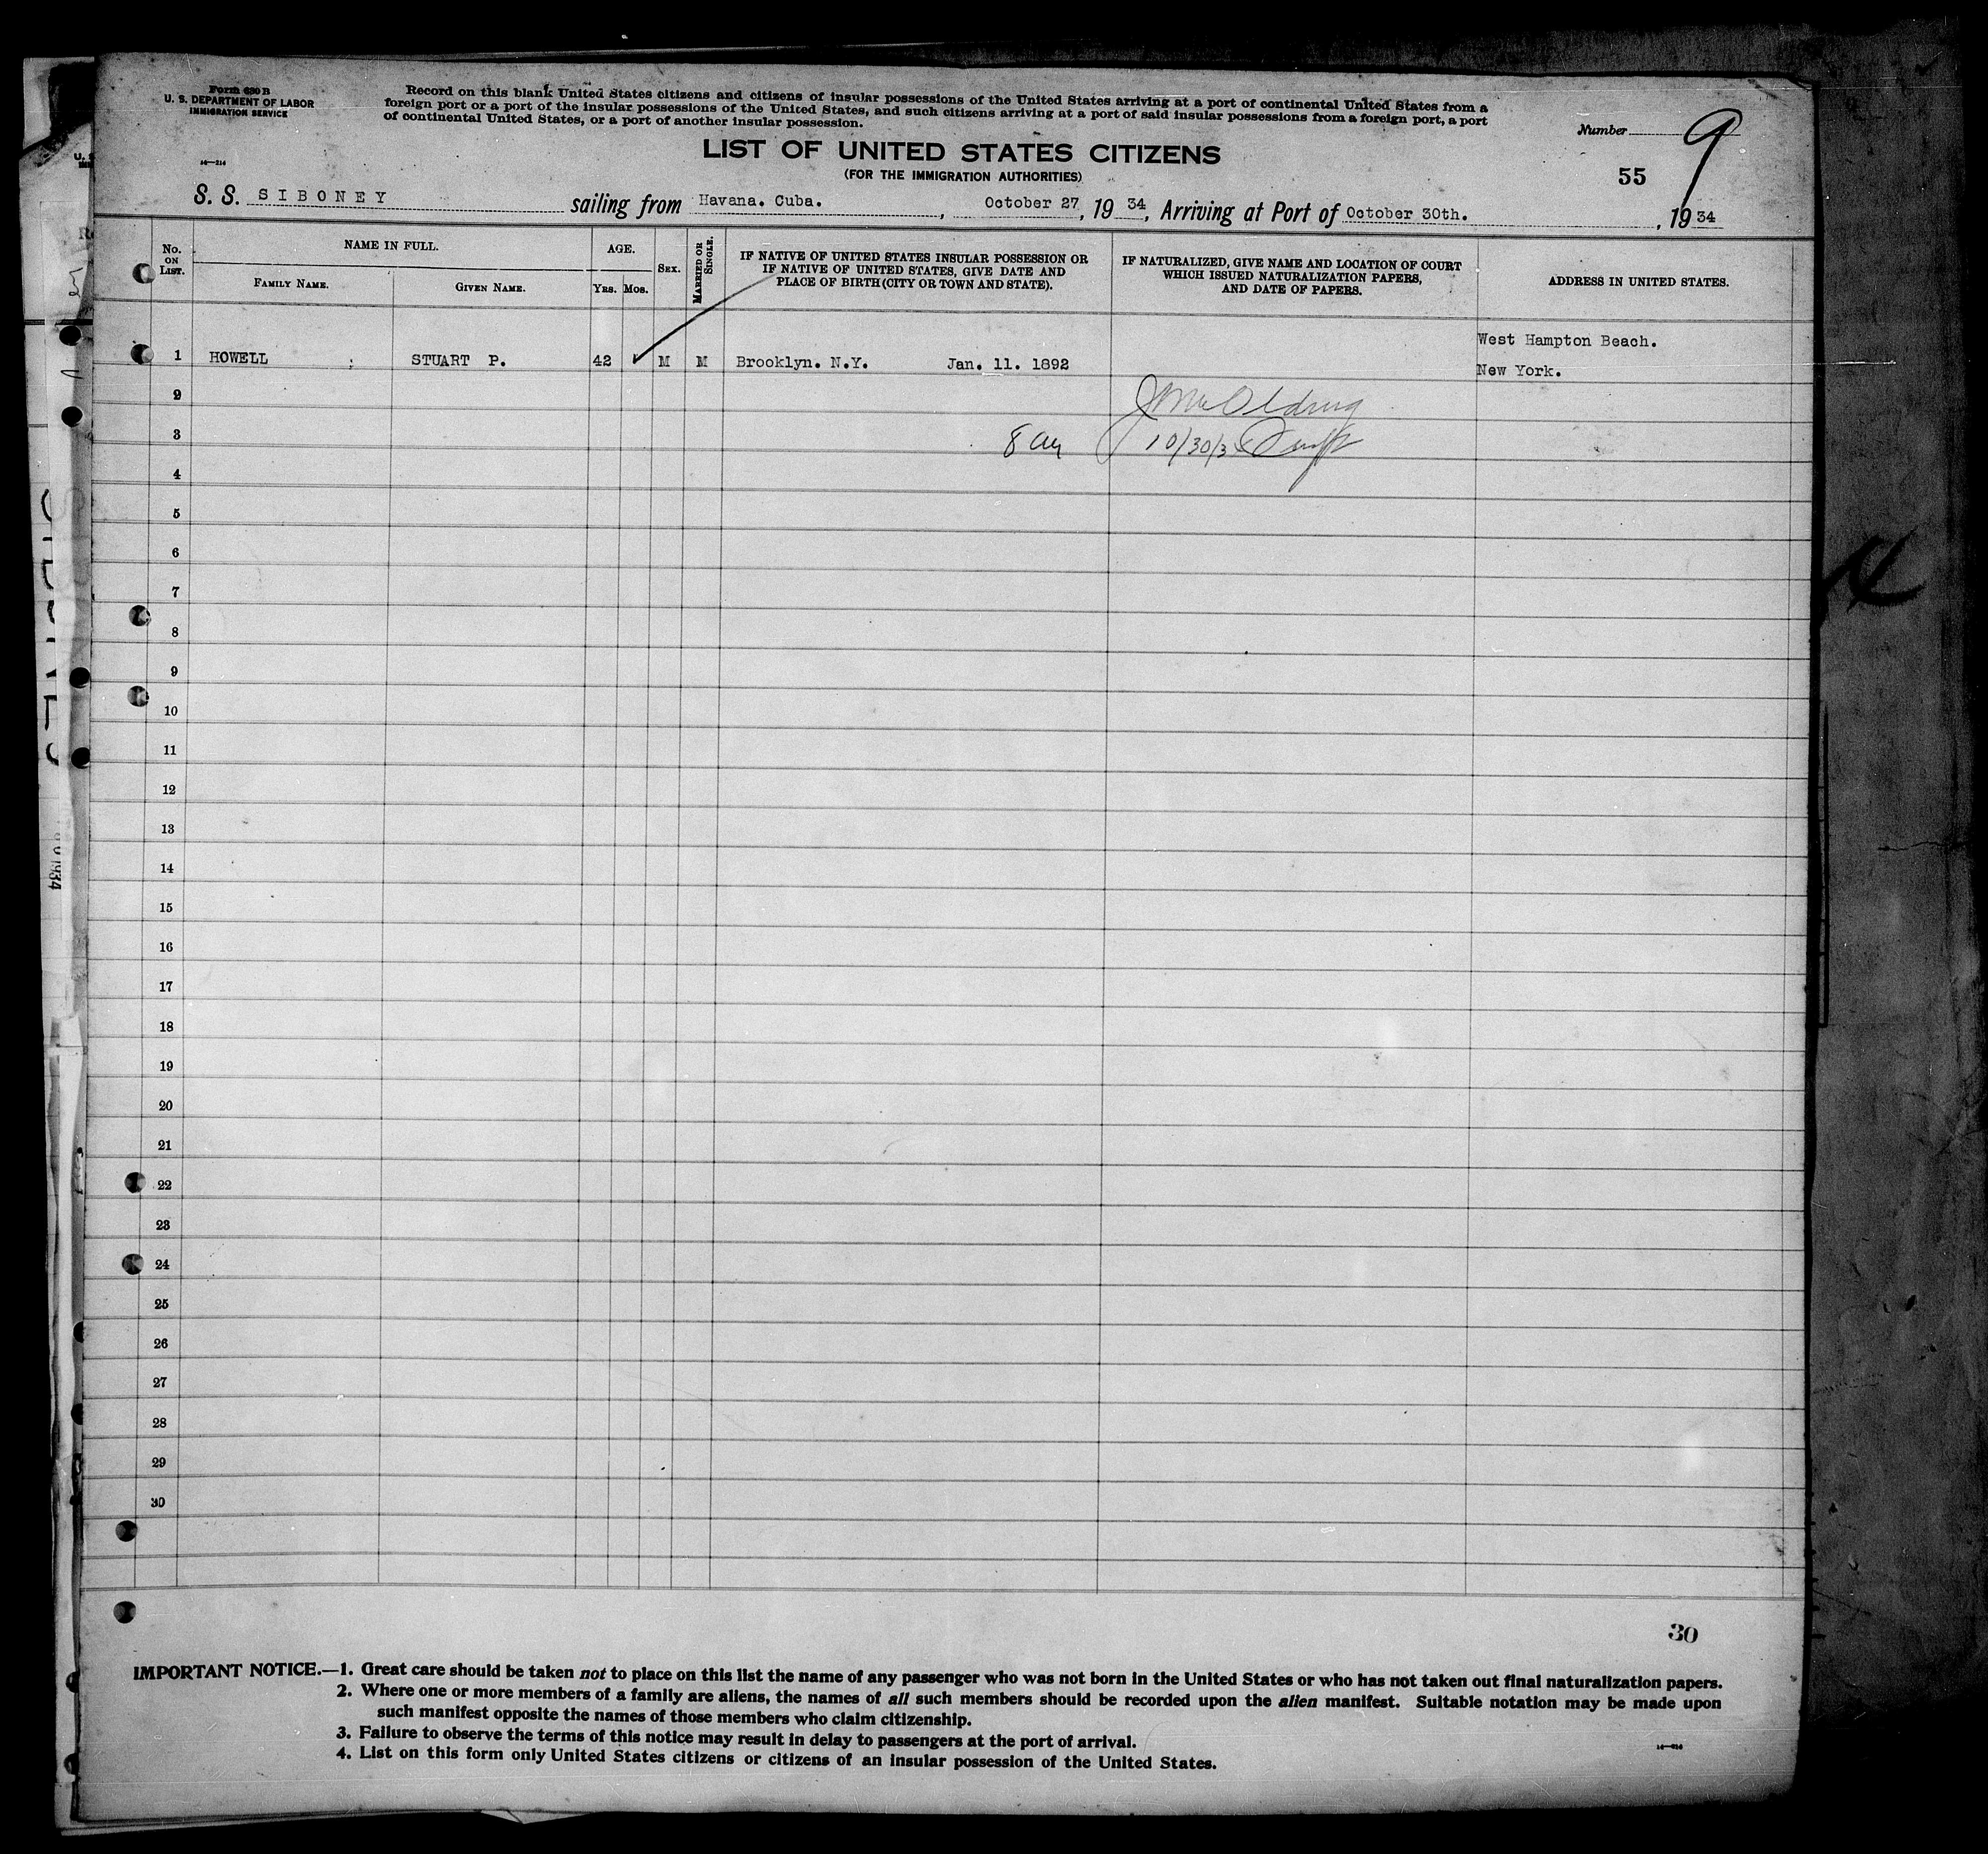 Form 630 B
U. S. DEPARTMENT OF LABOR
IMMIGRATION SERVICE
Record on this blank United States citizens and citizens of insular possessions of the United States arriving at a port of continental United States from a
foreign port or a port of the insular possessions of the United States, and such citizens arriving at a port of said insular possessions from a foreign port, a port
of continental United States, or a port of another insular possession.
Number 9
14—214
LIST OF UNITED STATES CITIZENS
(FOR THE IMMIGRATION AUTHORITIES)
55
S. S. SIBONEY sailing from Havana. Cuba. , October 27, 19 34, Arriving at Port of October 30th. , 19 34
No. ON LIST.
NAME IN FULL.
FAMILY NAME.
GIVEN NAME.
AGE.
YRS. MOS.
SEX.
MARRIED OR SINGLE.
IF NATIVE OF UNITED STATES INSULAR POSSESSION OR
IF NATIVE OF UNITED STATES, GIVE DATE AND
PLACE OF BIRTH (CITY OR TOWN AND STATE).
IF NATURALIZED, GIVE NAME AND LOCATION OF COURT
WHICH ISSUED NATURALIZATION PAPERS,
AND DATE OF PAPERS.
ADDRESS IN UNITED STATES.
West Hampton Beach.
1 HOWELL ; STUART P. 42 M M Brooklyn. N.Y. Jan. 11. 1892
New York.
2
3 8 10/30/34
4
5
6
7
8
9
10
11
12
13
14
15
16
17
18
19
20
21
22
23
24
25
26
27
28
29
30
30
IMPORTANT NOTICE.—1. Great care should be taken not to place on this list the name of any passenger who was not born in the United States or who has not taken out final naturalization papers.
2. Where one or more members of a family are aliens, the names of all such members should be recorded upon the alien manifest. Suitable notation may be made upon
such manifest opposite the names of those members who claim citizenship.
3. Failure to observe the terms of this notice may result in delay to passengers at the port of arrival.
4. List on this form only United States citizens or citizens of an insular possession of the United States.
14—214